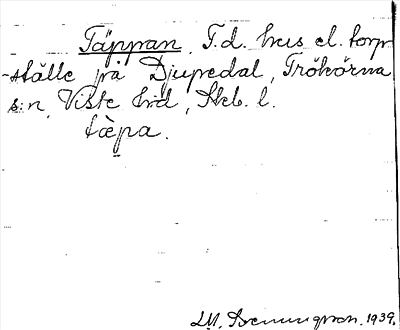 Täppran, F.d. hus el. torp-
ställe på Djupedal, Trökörna
s:n, Viste hd, Skb. l.
tæ̀pa.
1939.